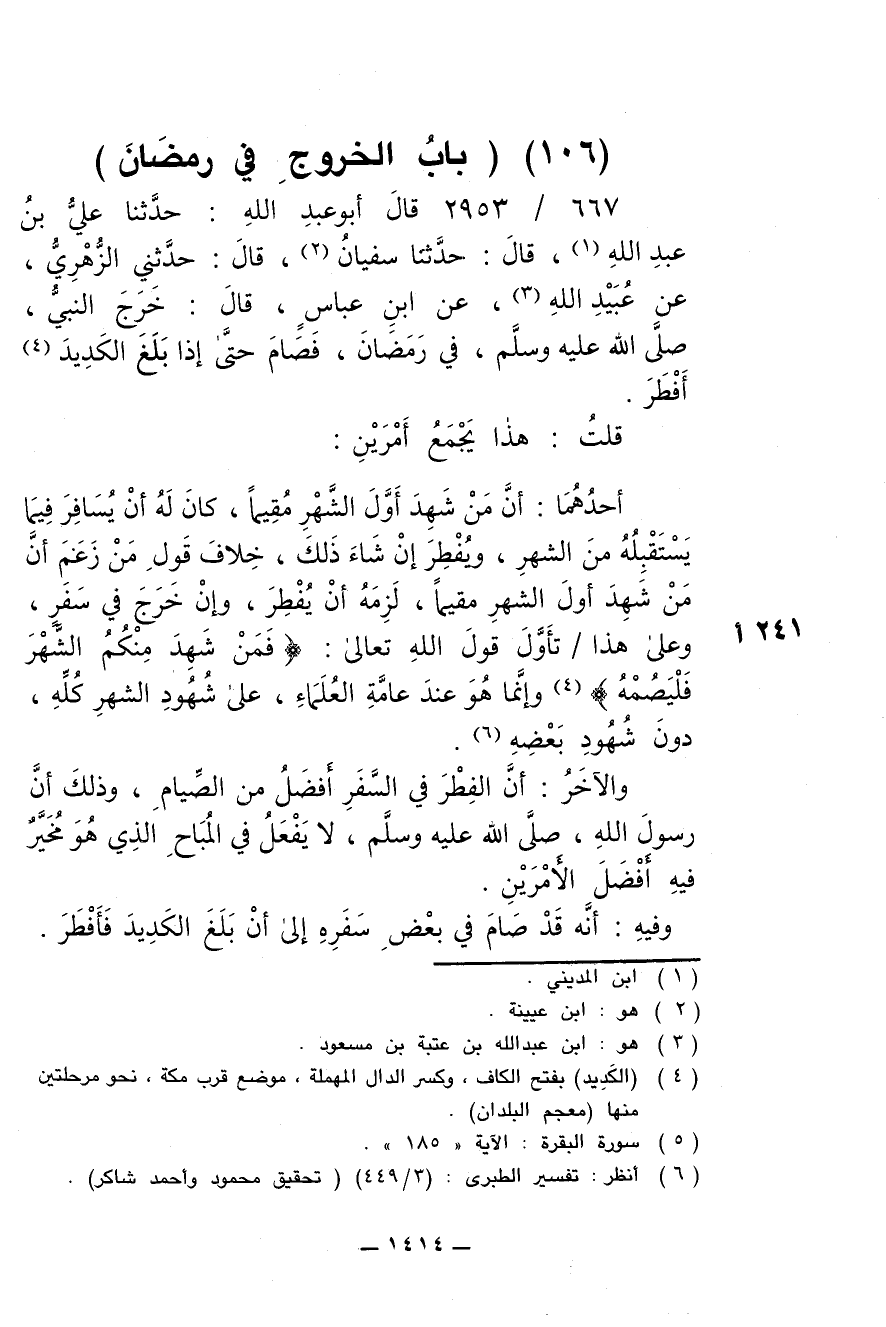 (١٠٦) ( بابُ الخروجِ في رمضَانَ )
٦٦٧ / ٢٩٥٣ قالَ أبوعبدِ اللهِ : حدَّثنا عليُّ بنُ
عبدِ اللهِ (١) ، قالَ : حدَّثنا سفيانُ (٢) ، قالَ : حدَّثني الزُّهْرِيُّ ،
عن عُبَيْدِ اللهِ (٣) ، عن ابنِ عباسٍ ، قالَ : خَرَجَ النبيُّ ،
صلَّى الله عليه وسلَّم ، في رَمَضَانَ ، فَصَامَ حتىَّ إذا بَلَغَ الكَدِيدَ (٤)
أَفْطَرَ .
قلتُ : هذا يَجْمَعُ أَمْرَيْنِ :
أحدُهُمَا : أنَّ مَنْ شَهِدَ أَوَّلَ الشَّهْرِ مُقِيماً ، كانَ لَهُ أنْ يُسَافِرَ فِيمَا
يَسْتَقْبِلُهُ منَ الشهرِ ، ويُفْطِرَ إنْ شَاءَ ذَلكَ ، خِلافَ قَولِ مَنْ زَعَمَ أنَّ
مَنْ شَهِدَ أولَ الشهرِ مقيماً ، لَزِمَهُ أنْ يُفْطِرَ ، وإنْ خَرَجَ في سَفَرٍ ،
٢٤١ أ
وعلىٰ هذا / تأوَّلَ قولَ اللهِ تعالىٰ : ﴿ فَمَنْ شَهِدَ مِنْكُمُ الشَّهْرَ
فَلْيَصُمْهُ ﴾ (٤) وإنَّما هُوَ عندَ عامَّةِ العُلَمَاءِ ، علىٰ شُهُودِ الشهرِ كُلِّهِ ،
دونَ شُهُودِ بَعْضِهِ (٦) .
والآخَرُ : أنَّ الفِطْرَ في السَّفَرِ أَفضَلُ من الصِّيامِ ، وذلكَ أنَّ
رسولَ اللهِ ، صلَّى الله عليه وسلَّم ، لا يَفْعَلُ في المُبَاحِ الذِي هُوَ مُخَيَّرٌ
فيهِ أَفْضَلَ الأَمْرَيْنِ .
وفيهِ : أنَّه قَدْ صَامَ في بعْضِ سَفَرِهِ إلىٰ أنْ بَلَغَ الكَدِيدَ فَأَفْطَرَ .
(١) ابن المديني .
(٢) هو : ابن عيينة .
(٣) هو : ابن عبدالله بن عتبة بن مسعود .
(٤) (الكَدِيد) بفتح الكاف ، وكسر الدال المهملة ، موضع قرب مكة ، نحو مرحلتين
منها (معجم البلدان) .
(٥) سورة البقرة : الآية « ١٨٥ » .
(٦) أنظر : تفسير الطبرى : (٤٤٩/٣) ( تحقيق محمود وأحمد شاكر) .
ـ ١٤١٤ ـ